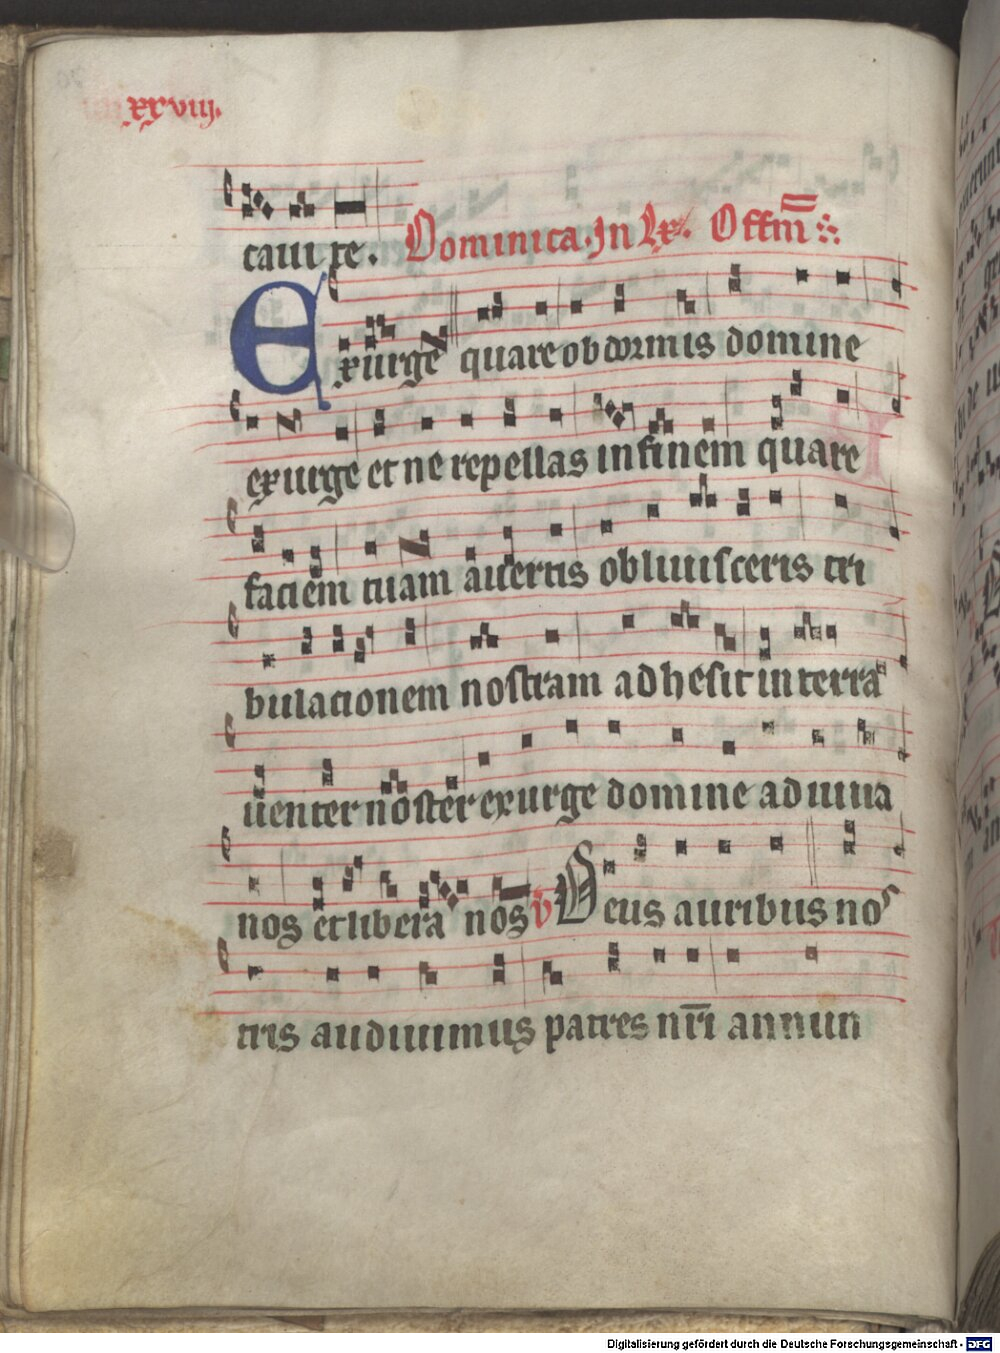 xxviij.
caui te. Dominica. In Lx. Offm̄
Exurge quare obdormis domine
exurge et ne repellas in finem quare
faciem tuam auertis obliuisceris tri
bulationem nostram adhesit in terra
uenter noster exurge domine adiuua
nos et libera nos v Deus auribus nos
tris audiuimus patres nr̄i annun
Digitalisierung gefördert durch die Deutsche Forschungsgemeinschaft - DFG